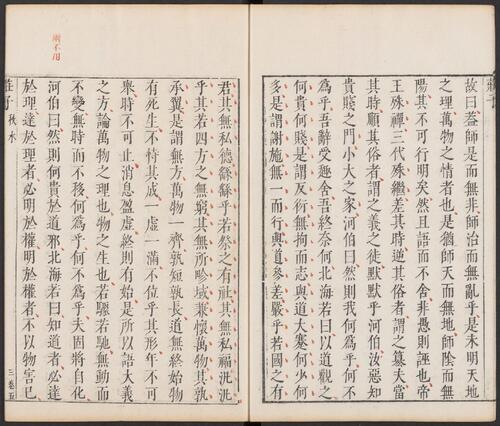 莊子
故曰蓋師是而無非師治而無亂乎是未明天地
之理萬物之情者也是猶師天而無地師陰而無
陽其不可行明矣然且語而不舍非愚則誣也帝
王殊禪三代殊繼差其時逆其俗者謂之篡夫當
其時順其俗者謂之義之徒默默乎河伯汝惡知
貴賤之門小大之家河伯曰然則我何為乎何不
為乎吾辭受趣舍吾終奈何北海若曰以道觀之
何貴何賤是謂反衍無拘而志與道大蹇何少何
多是謂謝施無一而行與道參差嚴乎若國之有
君其無私德繇繇乎若祭之有社其無私福泛泛
乎其若四方之無窮其無所畛域兼懷萬物其孰
承翼是謂無方萬物一齊孰短孰長道無終始物
有死生不恃其成一虛一滿不位乎其形年不可
舉時不可止消息盈虛終則有始是所以語大義
之方論萬物之理也物之生也若驟若馳無動而
不變無時而不移何為乎何不為乎夫固將自化
河伯曰然則何貴於道邪北海若曰知道者必達
於理達於理者必明於權明於權者不以物害己
莊子 秋水 三卷五